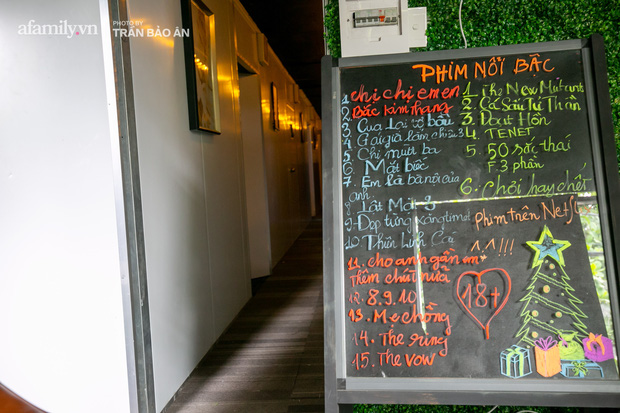 afamily.vn
PHOTO BY
TRẦN BẢO ÂN
PHIM NỔI BẬC
1 chị chị em em
2. Bắc kim thang
3. Cua lại vợ bầu
4 Gái già lắm chiêu 3
5. Chị mười ba
6. Mắt biếc
7. Em là bà nội của
anh
8. Lật Mặt 3
9. Đẹp từng
10 Thiên Linh Cái
11. cho anh gần em
thêm chút nữa
12. 8.9.10
13. Mẹ chồng
14. The
15. The vow
1. The New Mutants
2. Cá Sấu Tử Thần
3. Đoạt Hồn
4. TENET
5. 50 sắc thái
F.3 phần
6. Chơi hay chết
Phim trên
^.^!!!
18+